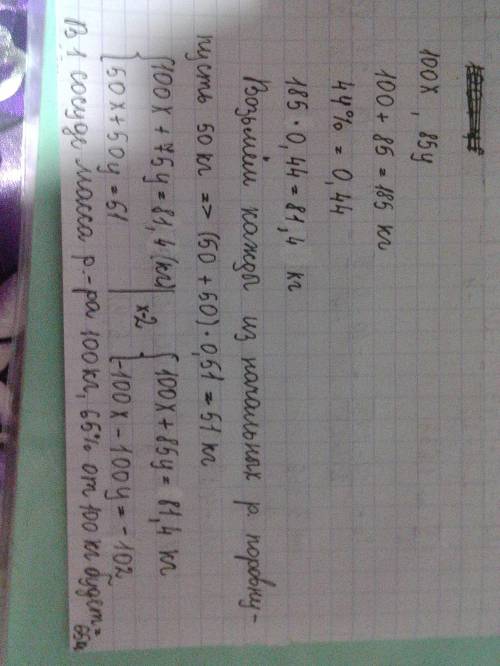 100x, 85y
100 + 85 = 185 кг
44% = 0,44
185 · 0,44 = 81,4 кг
Возьмём кажды из начальных р. поровну-
пусть 50 кг => (50 + 50) · 0,51 = 51 кг
{100x + 75y = 81,4 (кг) | x-2 {100x + 85y = 81,4 кг
{50x + 50y = 51 {-100x - 100y = -102
В 1 сосуде масса р-ра 100 кг, 65% от 100 кг будет =